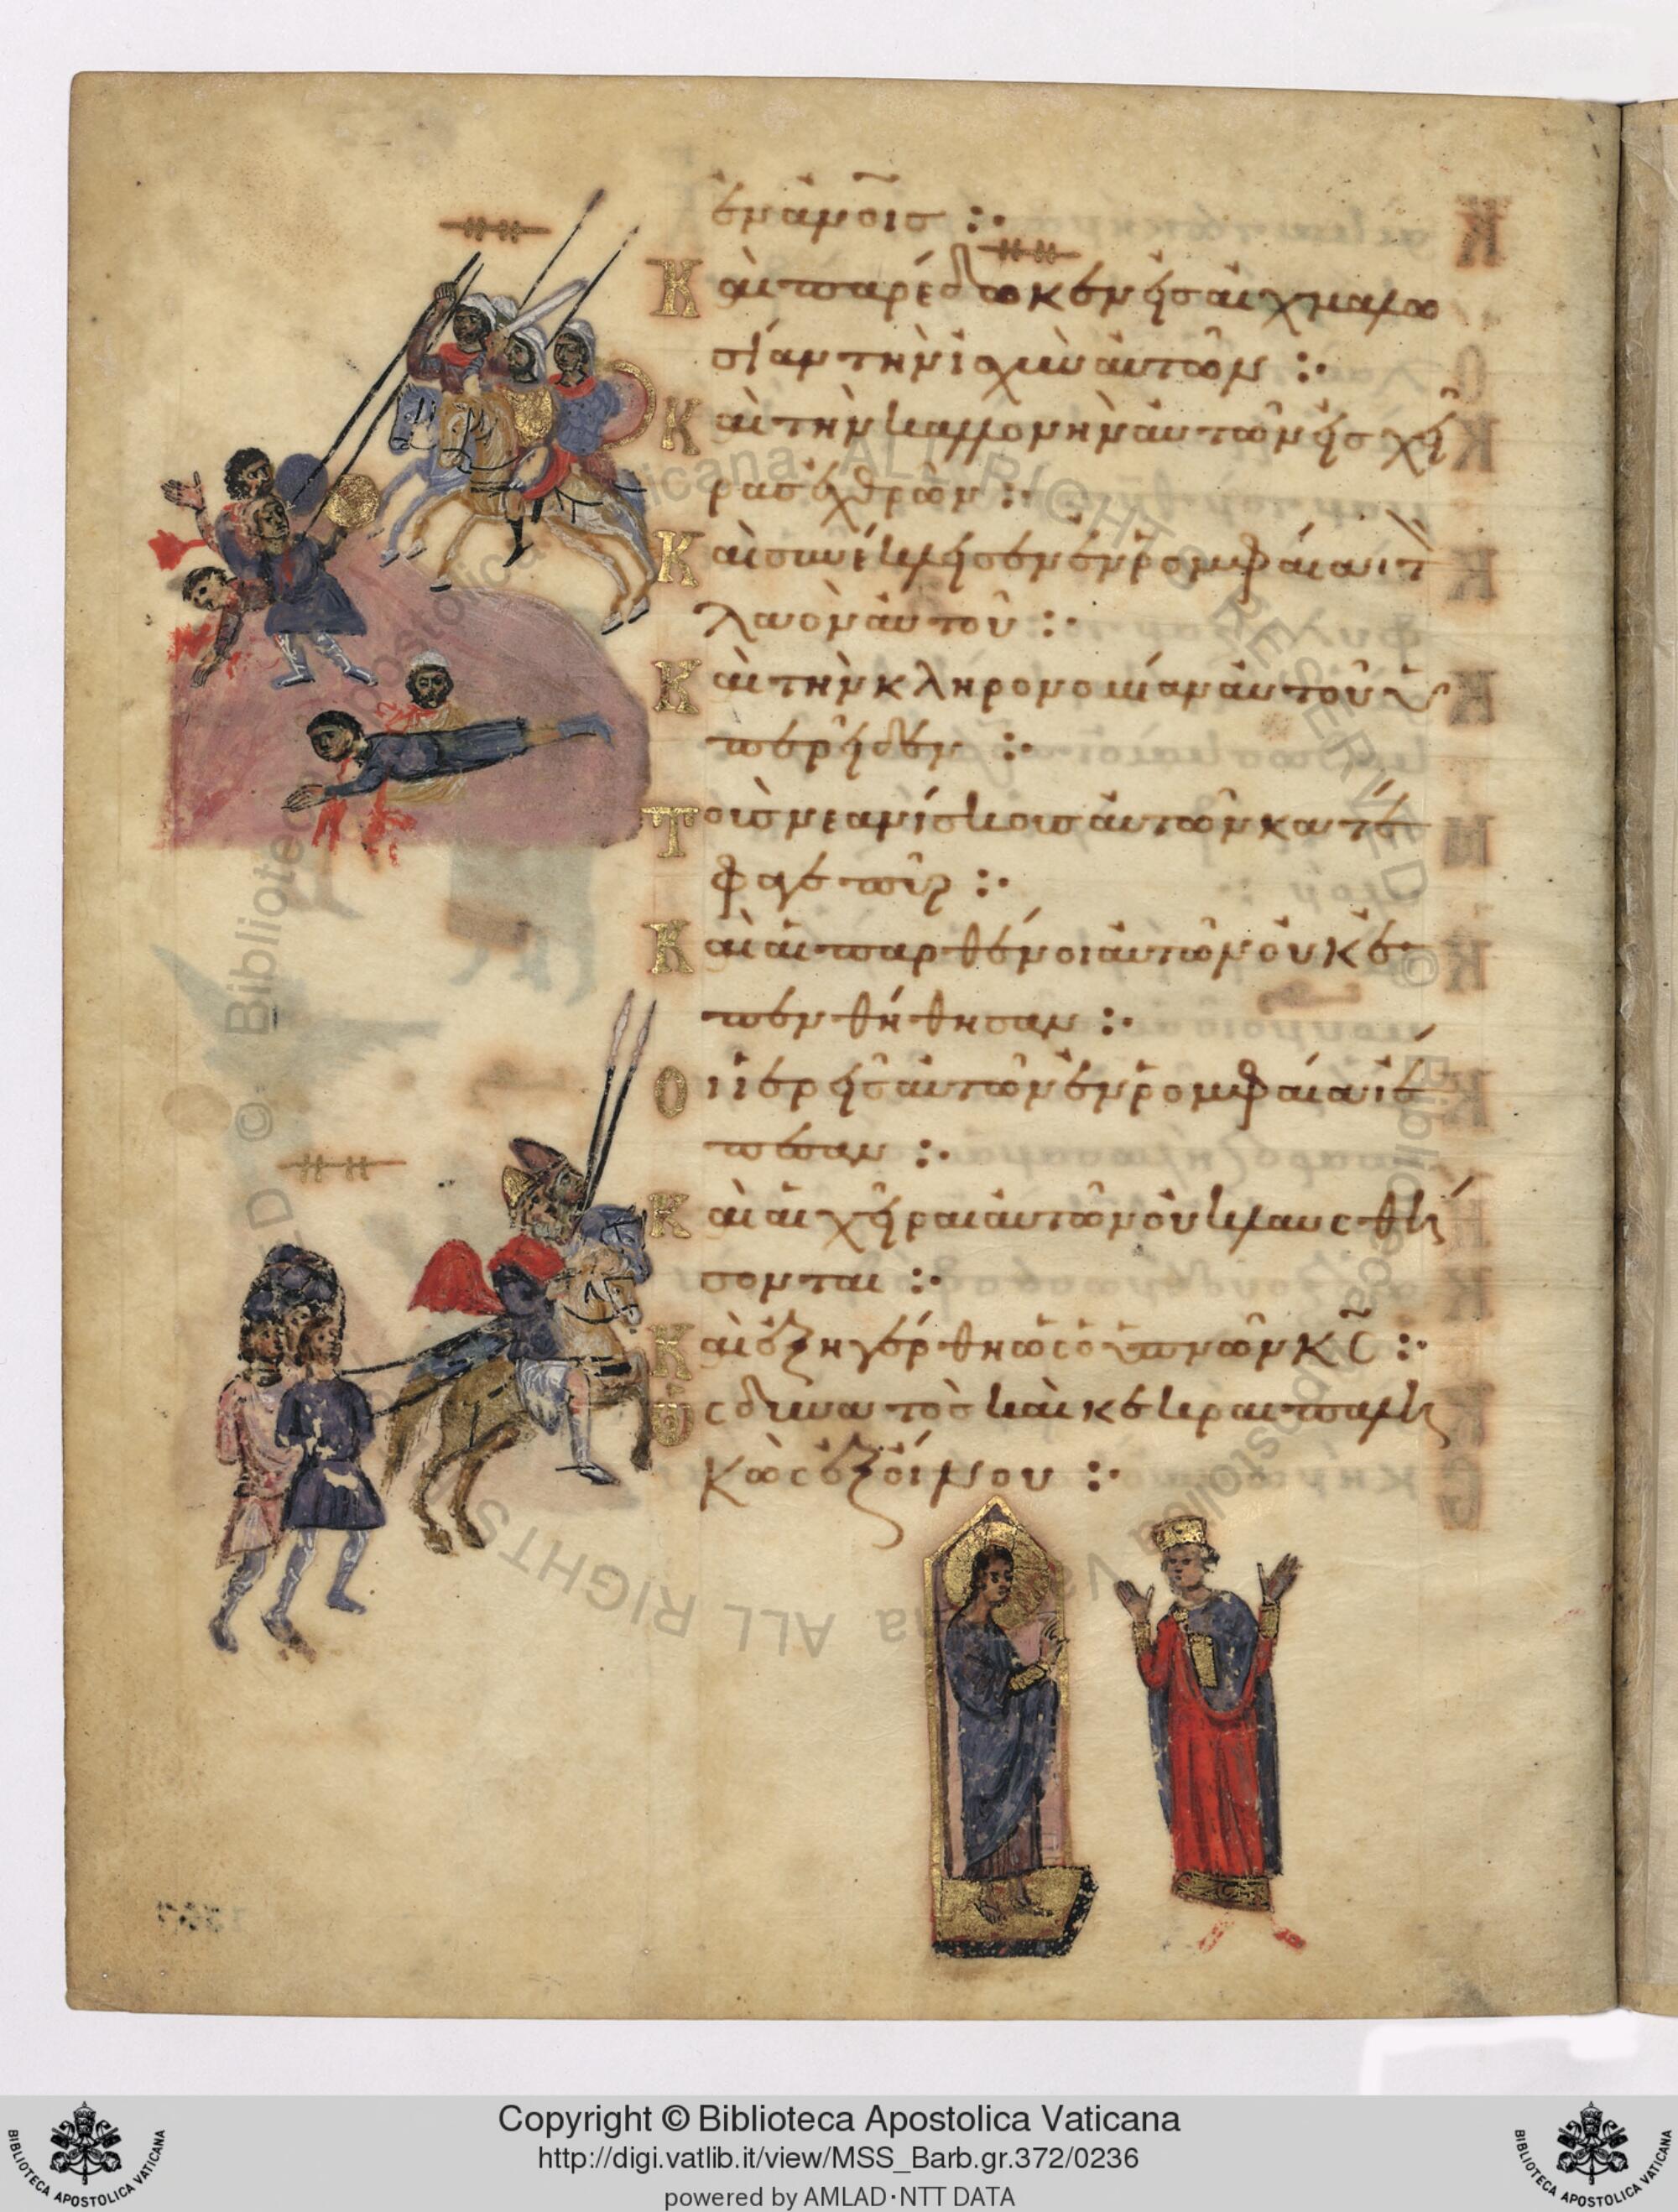 ἐν ἀνοῖς :·
Καὶ παρέδωκεν εἰς αἰχμαλω
σίαν τὴν ἰσχὺν αὐτῶν :·
Καὶ τὴν καλλονὴν αὐτῶν εἰς χεῖ
ρας ἐχθρῶν :·
Καὶ συνέκλεισεν ἐν ῥομφαίαι τὸν
λαὸν αὐτοῦ :·
Καὶ τὴν κληρονομίαν αὐτοῦ ὑ
περεῖδεν :·
Τοὺς νεανίσκους αὐτῶν κατέ
φαγε πῦρ :·
Καὶ αἱ παρθένοι αὐτῶν οὐκ ἐ
πενθήθησαν :·
Οἱ ἱερεῖς αὐτῶν ἐν ῥομφαίαι ἔ
πεσαν :·
Καὶ αἱ χῆραι αὐτῶν οὐ κλαυσθή
σονται :·
Καὶ ἐξηγέρθη ὡς ὁ ὑπνῶν κς :·
Ὡς δυνατὸς καὶ κεκραιπαλη
κὼς ἐξ οἴνου :·
Copyright © Biblioteca Apostolica Vaticana
http://digi.vatlib.it/view/MSS_Barb.gr.372/0236
powered by AMLAD·NTT DATA
BIBLIOTECA APOSTOLICA VATICANA
BIBLIOTECA APOSTOLICA VATICANA